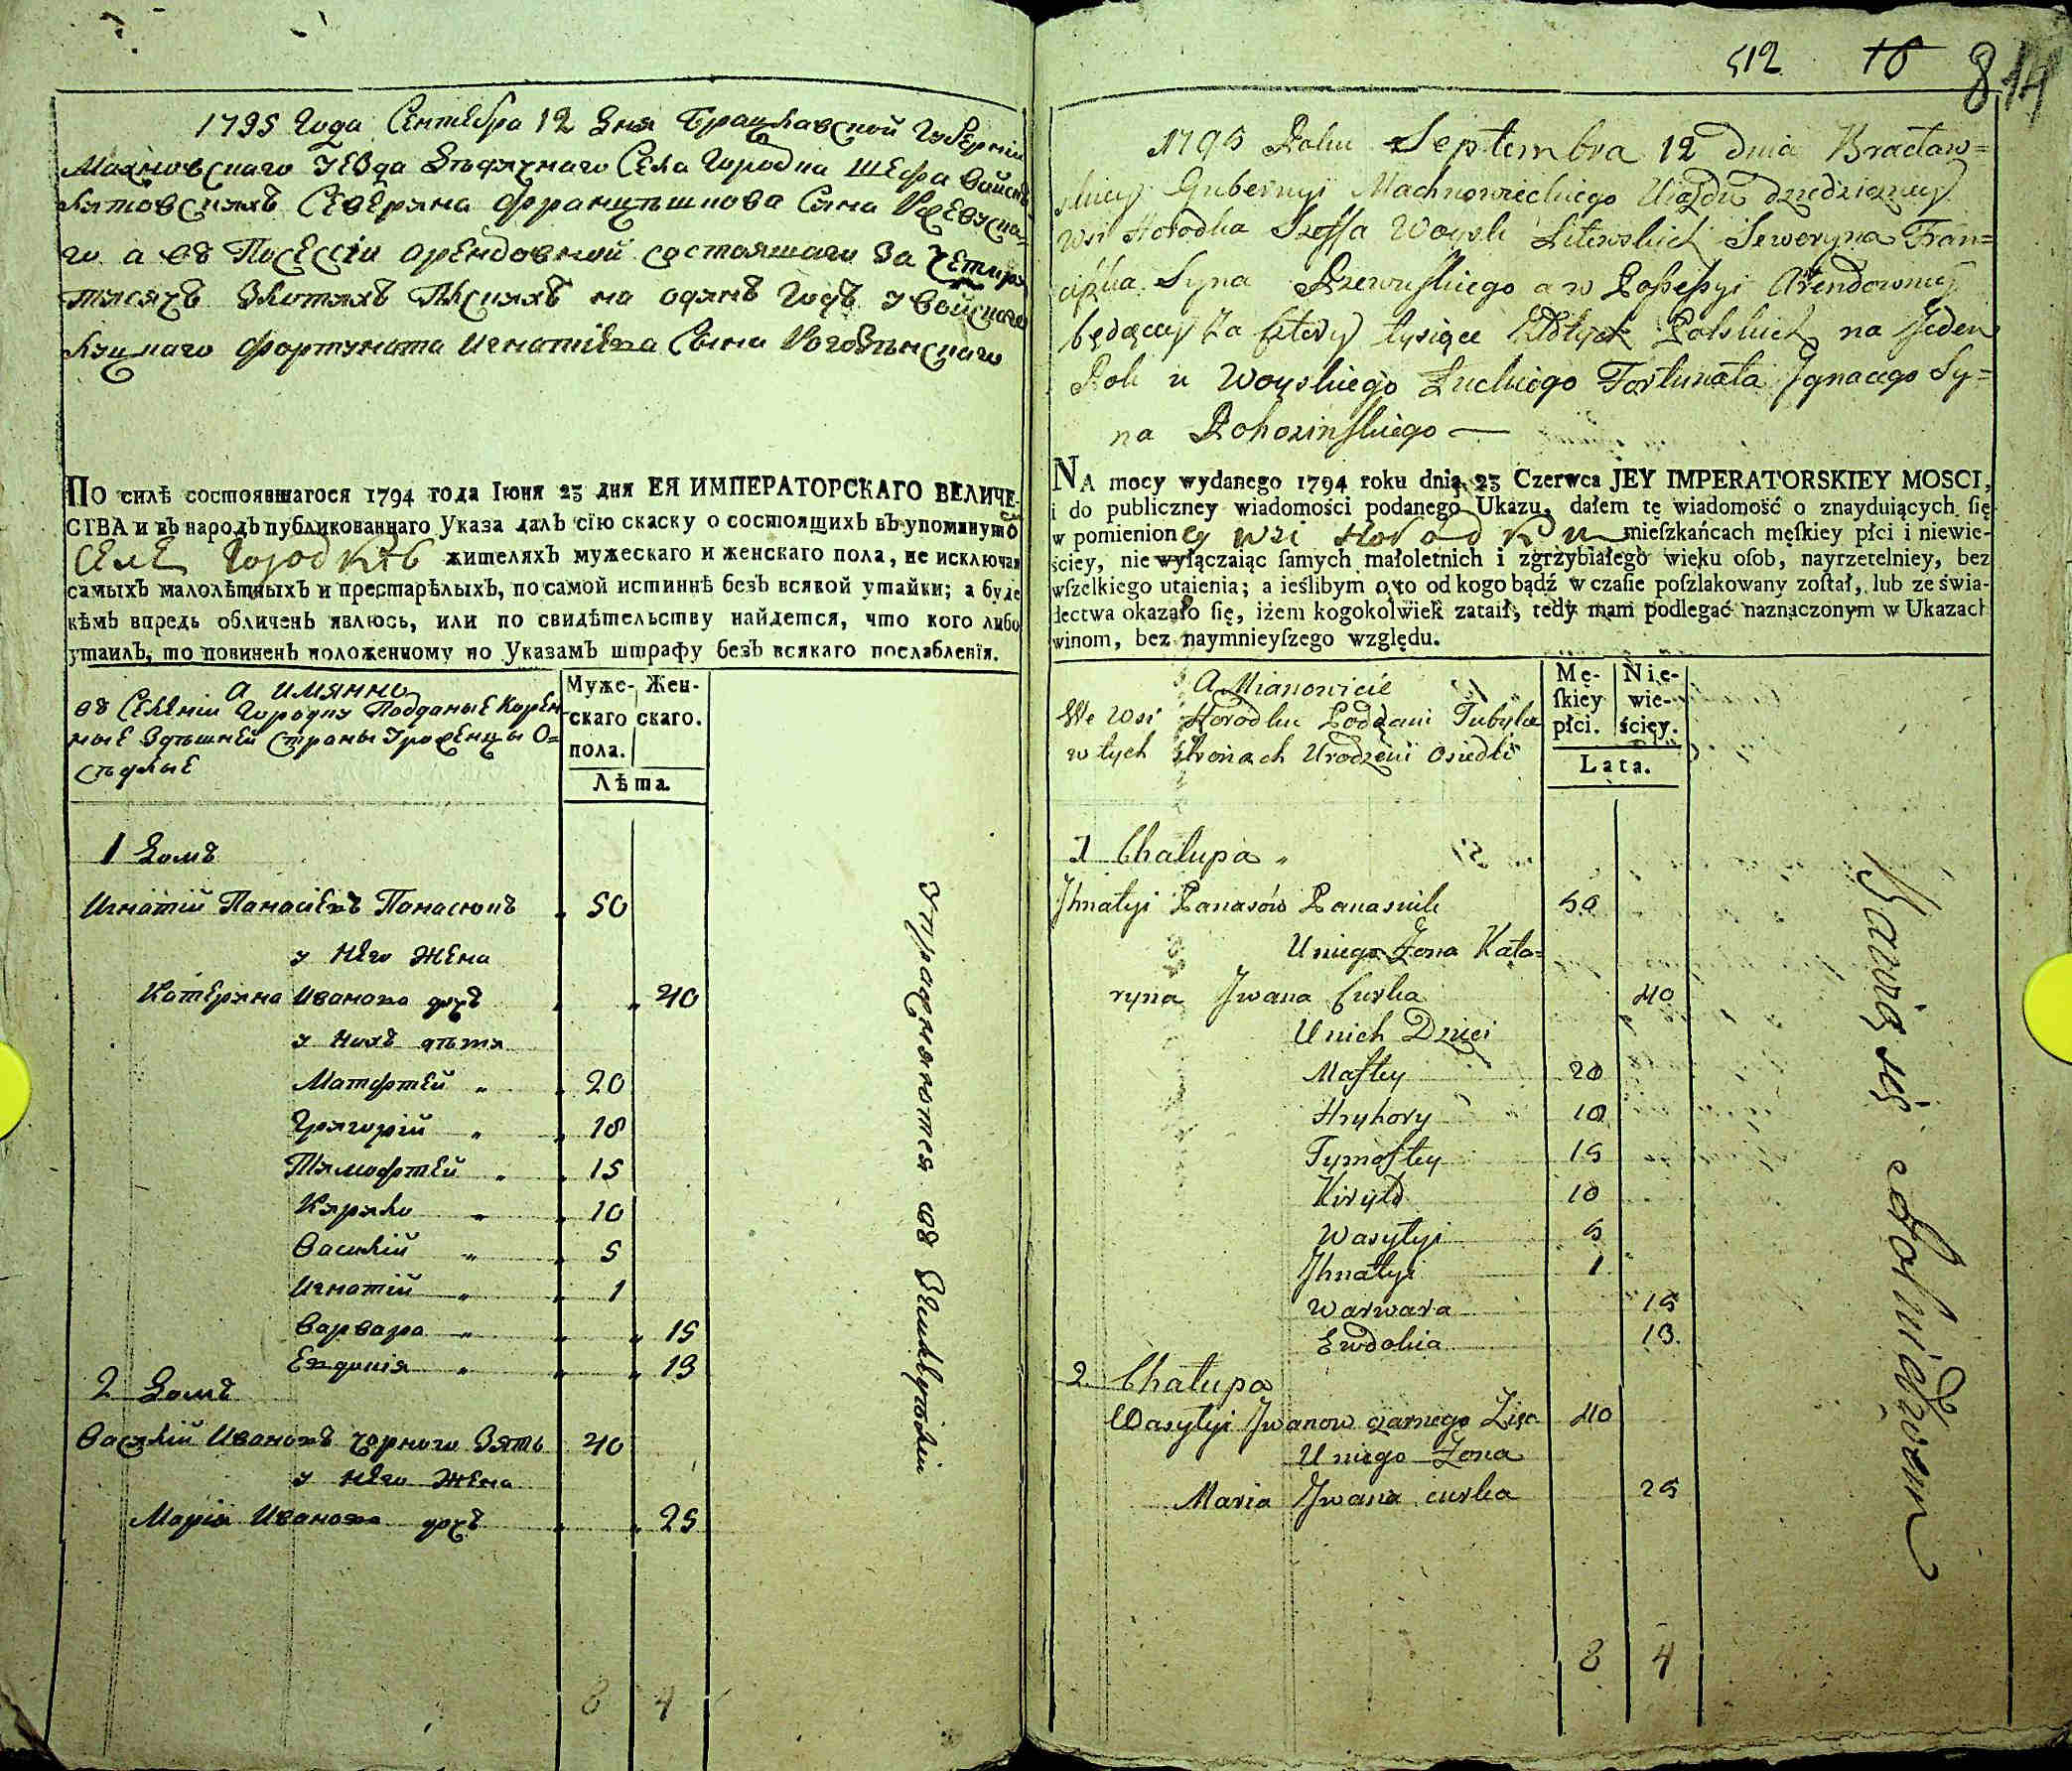 1795 Года Сентебра 12 дня Брацлавской Губерніи
Махновскаго Уезда Дъдячнаго Села Городка Шефа Войскъ
Лятовскяхъ Северяна Францышкова Сяна Ржевуска=
го а въ Посессіи арендовной состояшаго за четиря
тясячъ Злотяхъ Плскяхъ на одянъ Годъ у Войскаго
Луцкаго Фортуната Игнатіева Сына Рогозѣнскаго
По силѣ состоявшагося 1794 года Іюня 23 дня ЕЯ ИМПЕРАТОРСКАГО ВЕЛИЧЕ-
СТВА и въ народъ публикованнаго Указа далъ сію скаску о состоящихъ въ упомянуто
Селе Городкѣ жителяхъ мужескаго и женскаго пола, не исключая
самыхъ малолѣтныхъ и престарѣлыхъ, по самой истиннѣ безъ всякой утайки; а буде
кѣмъ впредь обличенъ явлюсь, или по свидѣтельству найдется, что кого либо
утаилъ, то повиненъ положенному по Указамъ штрафу безъ всякаго послабленія.
А имянно
въ Селеніи ГородкуПодданые Корен
ные Здѣшней Страны Уроженцы О=
сѣдлые
Муже-
скаго
пола.
Жен-
скаго.
Лѣта.
1 Домъ
Игнатій Панасіевъ Панасюкъ 50
у него жена
Катеряна Иванова дочъ 40
у нихъ дѣтя
Матфтей " 20
Грягорій " 18
Тямофтей " 15
Кяряло " 10
Василій " 5
Игнатій " 1
Варвара " 15
Евдокія " 13
2 Домъ
Василій Ивановъ чорного Зять 40
у него жена
Марія Иванова дочъ 25
8 4
Упражняются въ Земледѣліи
512 16 8 14
1795 Roku Septembra 12 dnia Bracław=
skiey Gubernyi Machnowieckiego Uiazdu dziedziczney
wsi Horodka Szeffa Woysk Litewskich Seweryna Fran=
ciszka Syna Rzewuskiego a w Possessyi Arendowney
będącey za Cztery tysiące Złotych Polskich na Jeden
Rok u Woyskiego Łuckiego Fortunata Jgnacego Sy=
na Rohozinskiego
NA mocy wydanego 1794 roku dnia 23 Czerwca JEY IMPERATORSKIEY MOSCI,
i do publiczney wiadomości podanego Ukazu, dałem tę wiadomość o znayduiących się
w pomienioney wsi Horodku mieſzkańcach męſkiey płci i niewie-
ściey, nie wyłączaiąc ſamych małoletnich i zgrzybiałego wieku oſob, nayrzetelniey, bez
wſzelkiego utaienia; a ieślibym o to od kogo bądź w czaſie poſzlakowany zoſtał, lub ze świa-
dectwa okazało się, iżem kogokolwiek zataił, tedy mam podlegać naznaczonym w Ukazach
winom, bez naymnieyſzego względu.
A Mianowicie
We Wsi Horodku Poddani Tubylce
w tych Stronach Urodzeni Osiedli
Mę-
ſkiey
płci.
Nie-
wie-
ściey.
Lata.
1 Chałupa
Jhnatyi Panasów Panasiuk 50
U niego Żona Kata=
ryna Jwana Curka 40
U nich Dzieci
Maftey 20
Hryhory 18
Tymoftey 15
Kiryło 10
Wasylyi 5
Jhnatyi 1
Warwara 15
Ewdokia 13.
2 Chałupa
Wasylyi Jwanow czarnego Zięć 40
U niego Żona
Maria Jwana curka 25
8 4
Bawią się Rolnictwem